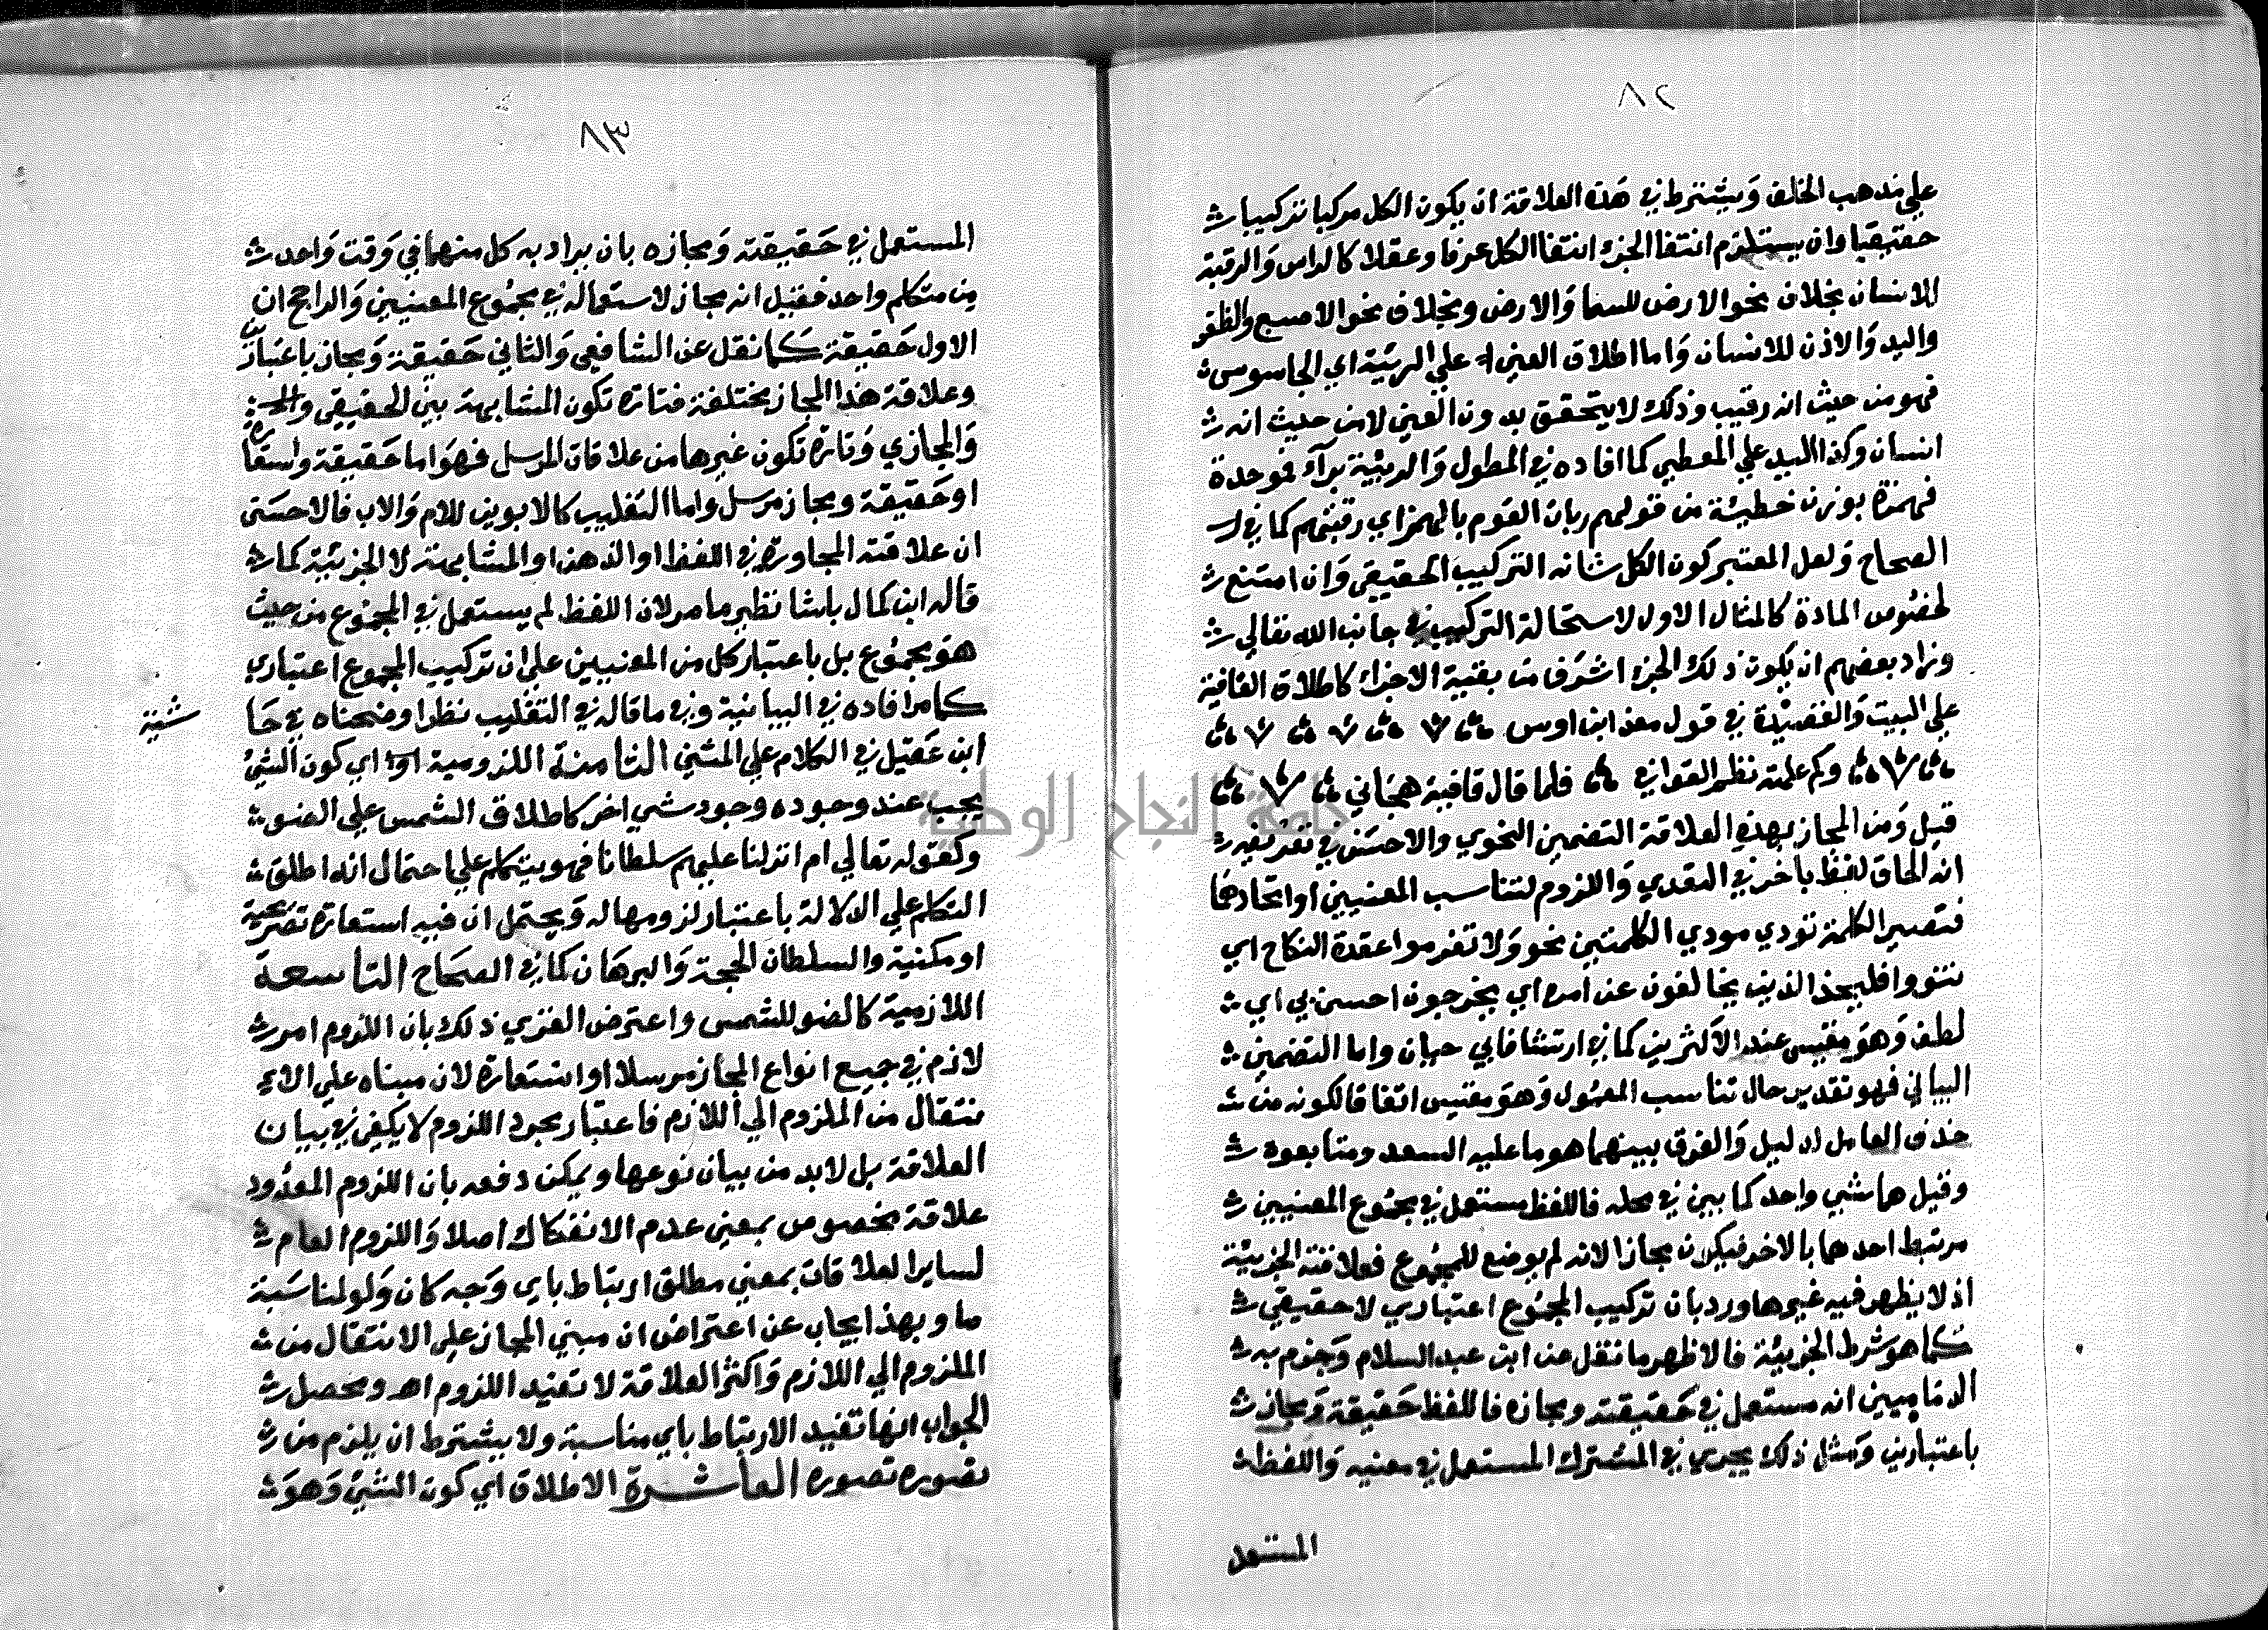 ٨٢
علي مذهب الخلف وَيشترط في هَذه العلاقة ان يكون الكل مركبا تركيبا
حقيقيا وان يستلزم انتفا الجزء انتفا الكل عرفا وعقلا كالراس وَالرقبة
للانسان بخلاف نحو الارض للسما وَالارض وبخلاف نحو الاصبع والظفر
واليد وَالاذن للانسان وَاما اطلاق العين علي الربيئة اي الجاسوس
فهو من حيث انه رقيب وذلك لا يتحقق بدون العين لا من حيث انه
انسان وكذا اليد علي المعطي كما افاده في المطول وَالربيئة برآء فموحدة
فهمزة بوزن خطيئة من قولهم ربأن القوم بالهمزاي رقبتهم كما في
الصحاح وَلعل المعتبر كون الكل شانه التركيب الحقيقي وَان امتنع
لخصُوص المادة كالمثال الاول لاستحالة التركيب في جانب الله تعالي
وزاد بعضهم ان يكون ذلك الجزء اشرَف من بقية الاجزاء كاطلاق القافية
علي البيت وَالقصيدة في قول معن ابن اوس
وكم علمته نظم القوافي فلما قال قافية هجَاني
قيل وَمن المجاز بهذه العلاقة التضمين النحوي والاحسَن في تعريفه
انه الحاق لفظ بآخر في التعدي وَاللزوم لتناسب المعنيين او اتحادهما
فتصير الكلمة تودي مودي الكلمتين نحو وَلا تعزموا عقدة النكاح اي
تنووا فليحذر الذين يخالفون عن امره اي يخرجون احسن بي اي
لطف وَهوَ مقيس عند الاكثرين كما في ارتشاف ابي حيان واما التضمين
البياني فهو تقدير حال تناسب المعمُول وَهوَ مقيس اتفاقا لكونه من
حذف العامل لدليل وَالفرق بينهما هو ما عليه السعد ومتابعوه
وقيل هما شي واحد كما بين في محله فاللفظ مستعمل في مجمُوع المعنيين
مرتبط احدهما بالاخر فيكون مجازا لانه لم يوضع للمجمُوع فعلاقته الجزئية
اذ لا يظهر فيه غيرها ورد بان تركيب المجمُوع اعتباري لا حقيقي
كما هوَ شرط الجزئية فالاظهر ما نقل عن ابن عبد السلام وَجزم به
الدمَاميني انه مستعمل في حَقيقته ومجازه فاللفظ حَقيقة وَمجاز
باعتبارين وَمثل ذلك يجري في المشترك المستعمل في معنييه وَاللفظ
المستعمل
٨٣
المستعمل في حَقيقته وَمجازه بان يراد به كل منهما في وَقت وَاحد
من متكلم واحد فقيل انه مجاز لاستعماله في مجمُوع المعنيين وَالراجح ان
الاول حَقيقة كما نقل عن الشافعي وَالثاني حَقيقة وَمجاز باعتبارين
وعلاقة هذا المجاز مختلفة فتارة تكون المشابهة بين الحقيقي
وَالمجازي وَتارة تكون غيرها من علاقات المرسل فهوَ اما حَقيقة واستعارة
او حَقيقة ومجاز مرسل واما التغليب كالابوين للام وَالاب فالاحسَن
ان علاقته المجاورة في اللفظ او الذهن او المشابهة لا الجزئية كما
قاله ابن كمال باشا نظير ما مر لان اللفظ لم يستعمل في المجمُوع من حيث
هوَ مجمُوع بل باعتبار كل من المعنيين علي ان تركيب المجموع اعتباري
كما مر افاده في البيانية وفي ما قاله في التغليب نظر اوضحناه في حَا
شية
ابن عَقيل في الكلام علي المثني الثامنة اللزومية اي كون الشيُ
يجب عند وجوده وجود شي اخر كاطلاق الشمس علي الضو
وكقوله تعالي ام انزلنا عليهم سلطانا فهو يتكلم علي احتمال انه اطلق
التكلم علي الدلالة باعتبار لزومها له وَيحتمل ان فيه استعارة تصريحية
او مكنية والسلطان الحجة وَالبرهَان كما في الصحَاح التاسعة
اللازمية كالضو للشمس واعترض الفنري ذلك بان اللزوم امر
لازم في جميع انواع المجاز مرسلا او استعارة لان مبناه علي الا
نتقال من الملزوم الي اللازم فاعتبار مجرد اللزوم لا يكفي في بيان
العلاقة بل لابد من بيان نوعها ويمكن دفعه بان اللزوم المعدُود
علاقة مخصوص بمعني عدم الانفكاك اصلا وَاللزوم العام
لساير العلاقات بمعني مطلق ارتباط باي وَجه كان وَلو لمناسَبة
ما وبهذا يجاب عن اعتراض ان مبني المجاز علي الانتقال من
الملزوم الي اللازم وَاكثر العلاقة لا تفيد اللزوم اهـ ومحصل
الجواب انها تفيد الارتباط باي مناسبة ولا يشترط ان يلزم من
تصوره تصوره العاشرة الاطلاق اي كون الشيُ وَهوَ